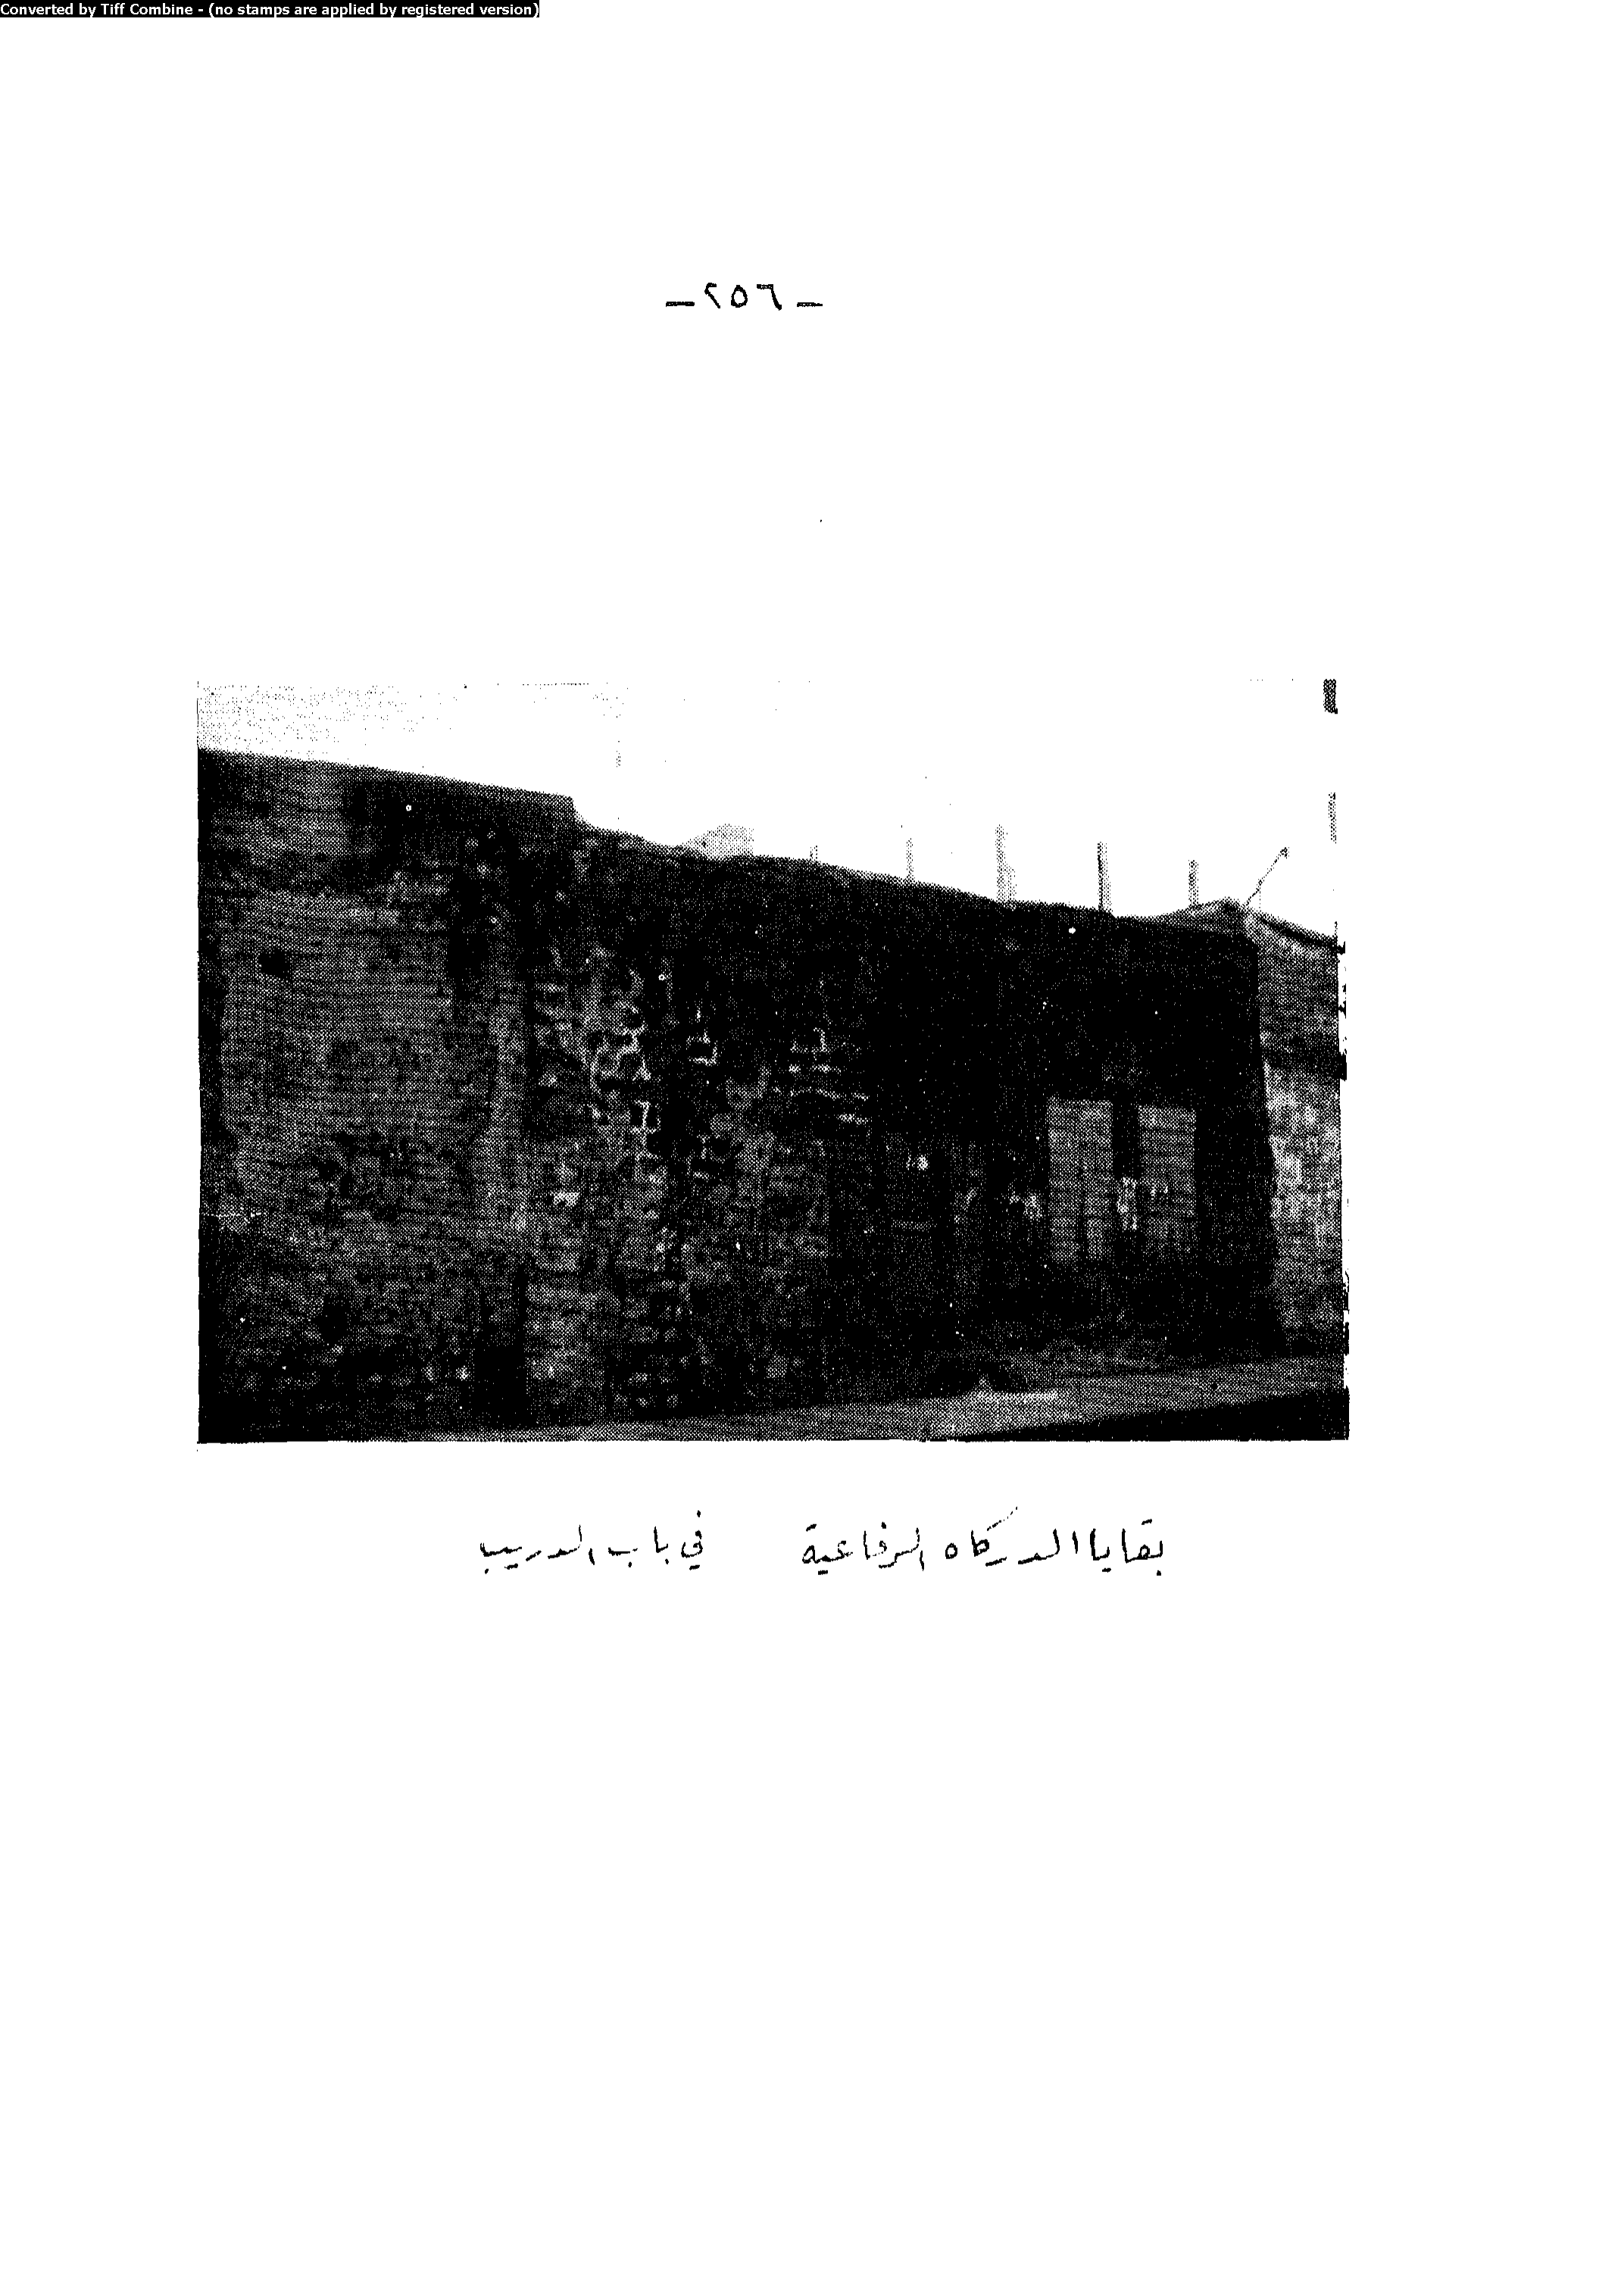 Converted by Tiff Combine - (no stamps are applied by registered version)
- ٢٥٦ -
بقايا الدركاه الرفاعية في باب الدريب